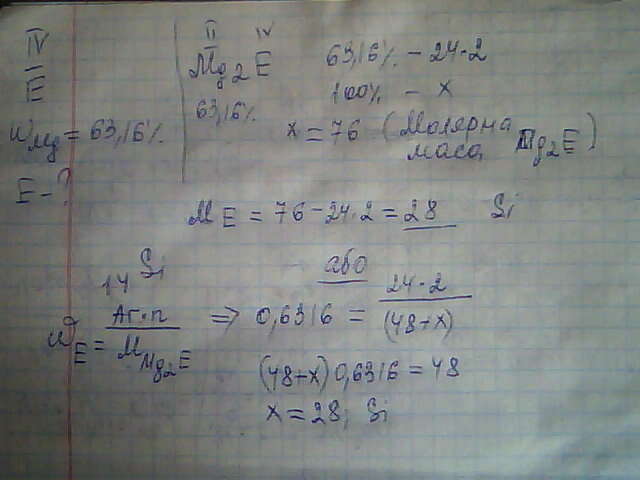 IV
E
ω Mg = 63,16%
E - ?
II IV
Mg2E
63,16%
63,16% - 24·2
100% - x
x = 76 (Молярна
маса Mg2E)
M E = 76 - 24·2 = 28 Si
14 Si
або
ωE = Ar·n / M Mg2E => 0,6316 = 24·2 / (48+x)
(48+x) 0,6316 = 48
x = 28; Si